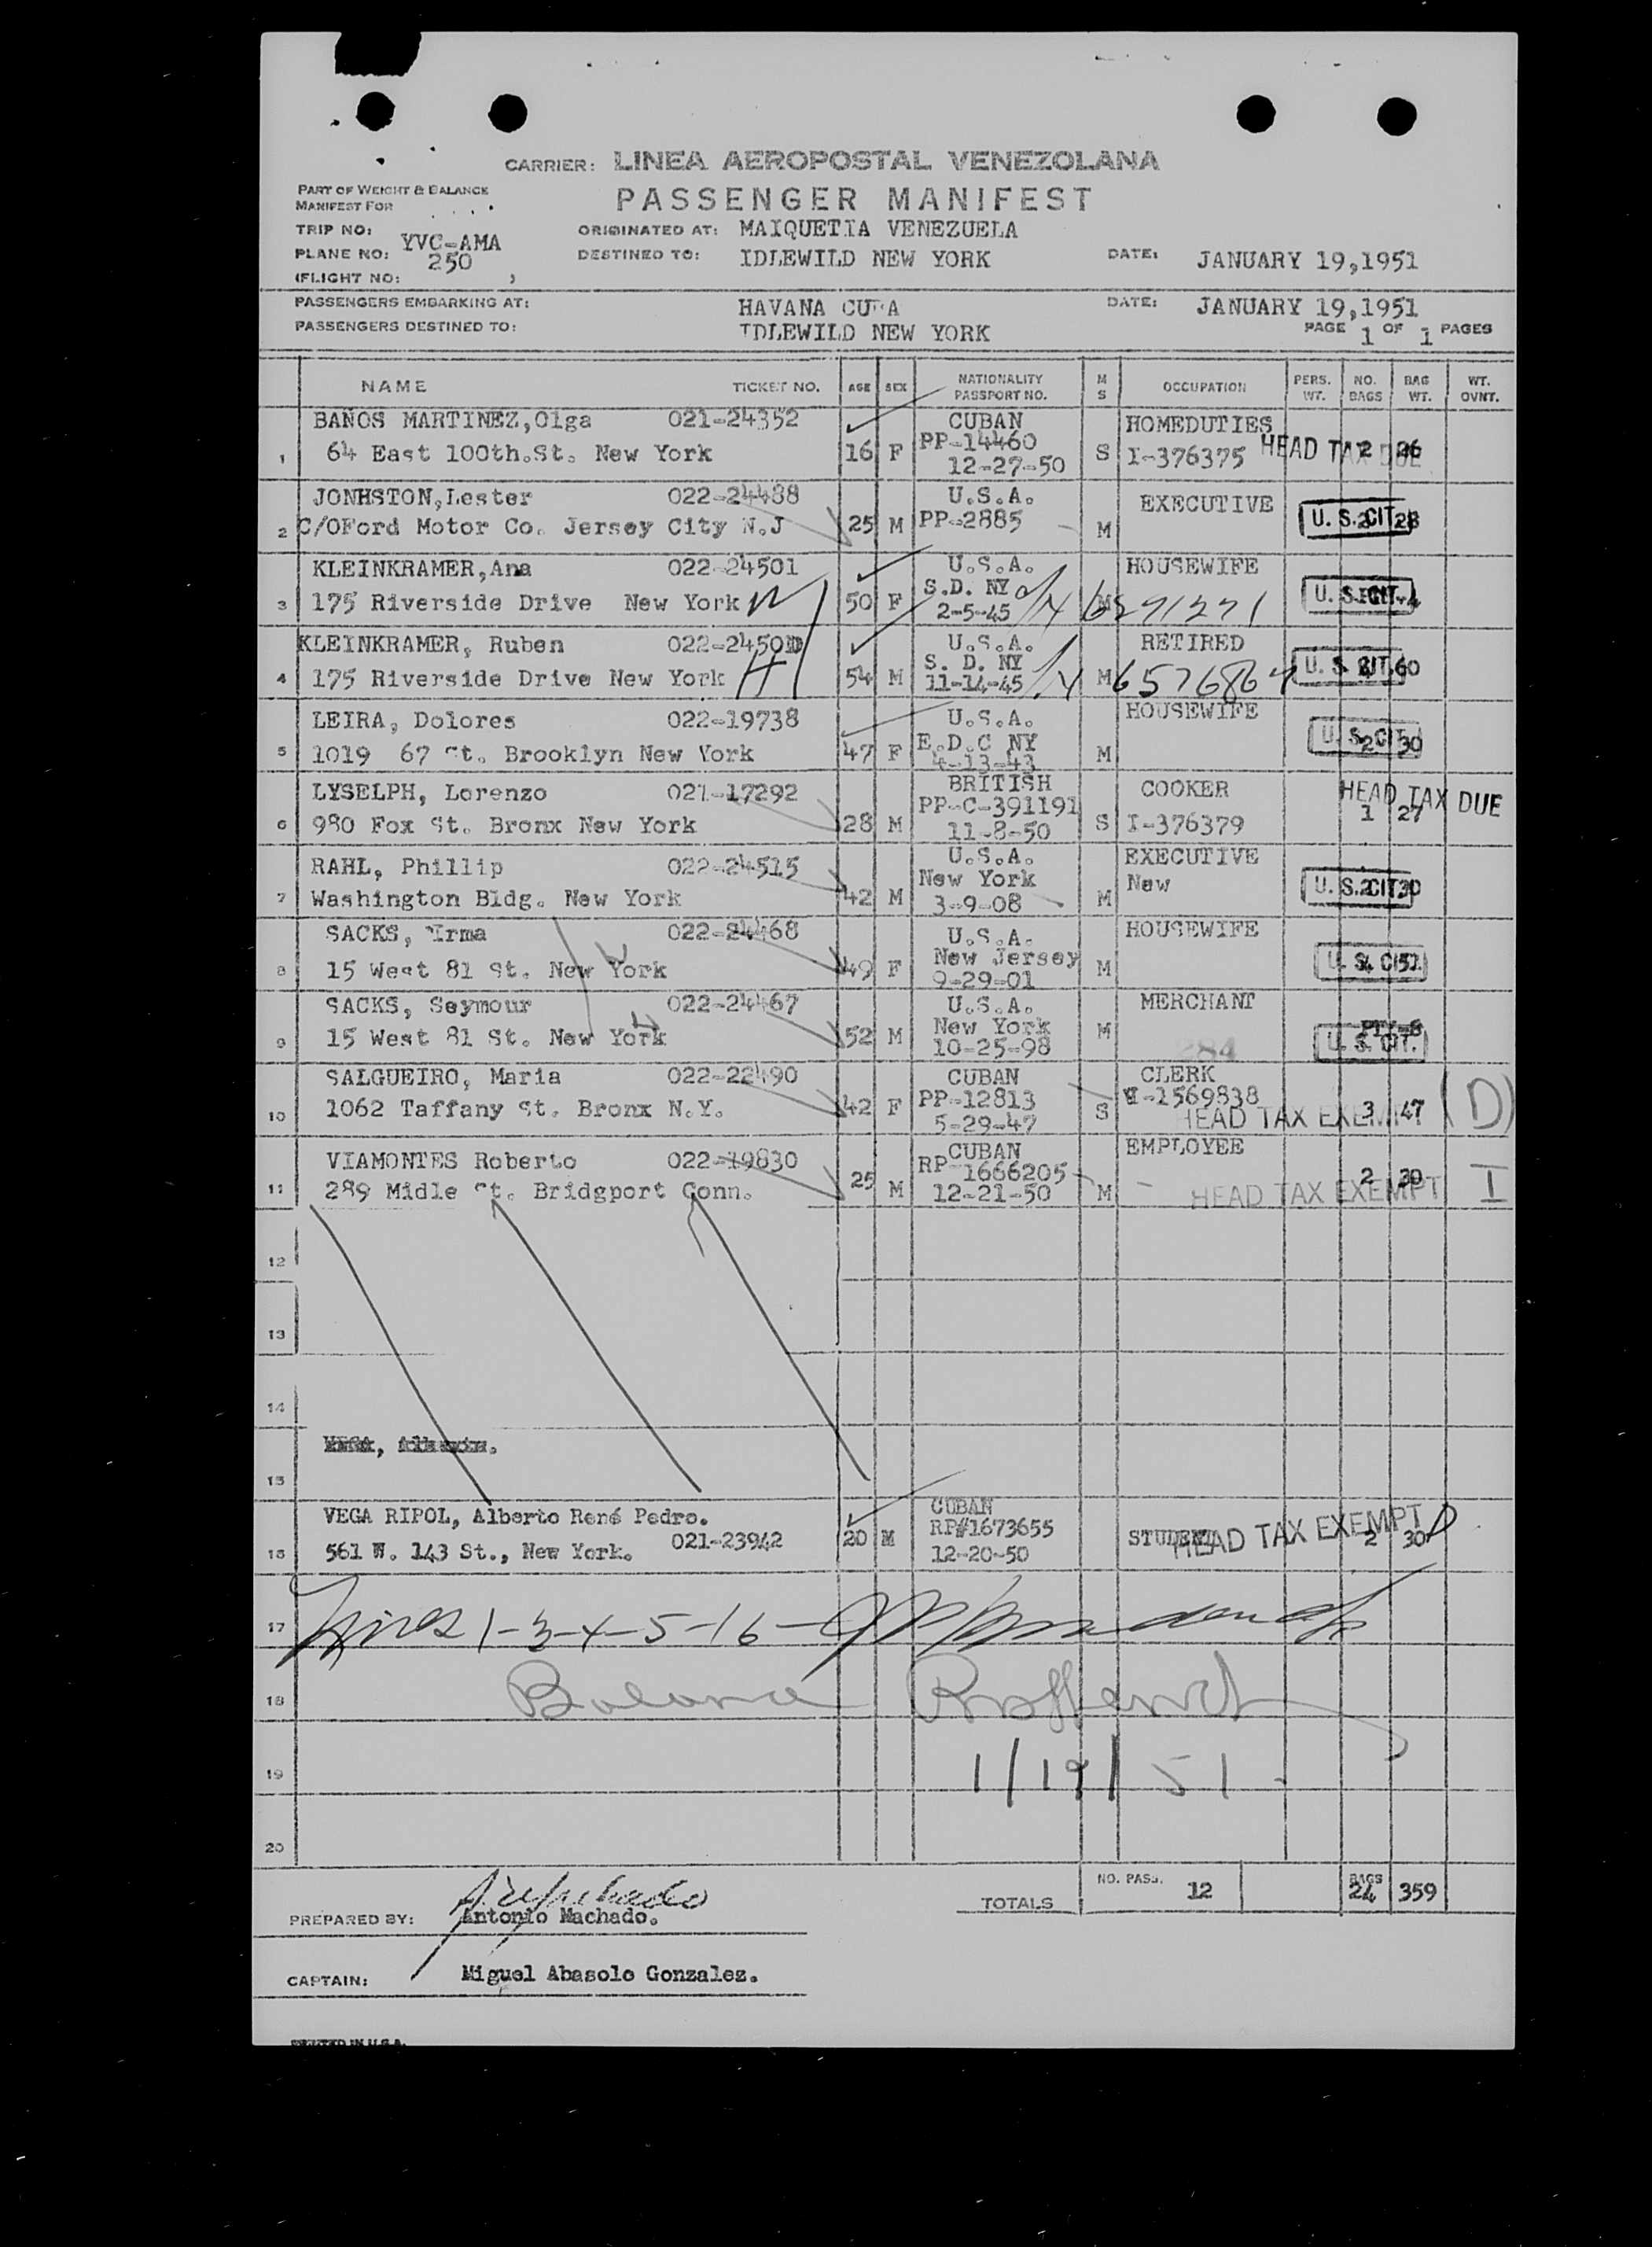 CARRIER: LINEA AEROPOSTAL VENEZOLANA
PART OF WEIGHT & BALANCE
MANIFEST FOR
PASSENGER MANIFEST
TRIP NO:
PLANE NO: YVC-AMA
(FLIGHT NO: 250 )
ORIGINATED AT: MAIQUETIA VENEZUELA
DESTINED TO: IDLEWILD NEW YORK DATE: JANUARY 19,1951
PASSENGERS EMBARKING AT: HAVANA CUBA DATE: JANUARY 19,1951
PASSENGERS DESTINED TO: IDLEWILD NEW YORK PAGE 1 OF 1 PAGES
NAME TICKET NO. AGE SEX NATIONALITY PASSPORT NO. M S OCCUPATION PERS. WT. NO. BAGS BAG WT. WT. OVNT.
BAÑOS MARTINEZ,Olga 021-24352 CUBAN HOMEDUTIES
1 64 East 100th.St. New York 16 F PP-14460 S I-376375 HEAD TAX DUE 2 26
12-27-50
JONHSTON,Lester 022-24488 U.S.A. EXECUTIVE
2 C/OFord Motor Co. Jersey City N.J 25 M PP-2885 M U. S. CIT. 2 28
KLEINKRAMER,Ana 022-24501 U.S.A. HOUSEWIFE
3 175 Riverside Drive New York 50 F S.D. NY M 6291271 U. S. CIT.
2-5-45
KLEINKRAMER, Ruben 022-24500 U.S.A. RETIRED
4 175 Riverside Drive New York 54 M S. D. NY M 6576864 U. S. CIT. 60
11-14-45
LEIRA, Dolores 022-19738 U.S.A. HOUSEWIFE
5 1019 67 St. Brooklyn New York 47 F E.D.C NY M U. S. CIT. 2 30
4-13-43
LYSELPH, Lorenzo 021-17292 BRITISH COOKER HEAD TAX DUE
6 980 Fox St. Bronx New York 28 M PP-C-391191 S I-376379 1 27
11-8-50
RAHL, Phillip 022-24515 U.S.A. EXECUTIVE
7 Washington Bldg. New York 42 M New York M New U. S. CIT. 2 30
3-9-08
SACKS, Irma 022-24468 U.S.A. HOUSEWIFE
8 15 West 81 St. New York 49 F New Jersey M U. S. CIT.
9-29-01
SACKS, Seymour 022-24467 U.S.A. MERCHANT
9 15 West 81 St. New York 52 M New York M U. S. CIT.
10-25-98 284
SALGUEIRO, Maria 022-22490 CUBAN CLERK
10 1062 Taffany St. Bronx N.Y. 42 F PP-12813 S -1569838 HEAD TAX EXEMPT 3 47 (D)
5-29-47
VIAMONTES Roberto 022-19830 CUBAN EMPLOYEE
11 289 Midle St. Bridgport Conn. 25 M RP-1666205 M HEAD TAX EXEMPT 2 30 I
12-21-50
12
13
14
15
VEGA RIPOL, Alberto René Pedro. CUBAN
021-23942 20 M RP#1673655 STUDENT HEAD TAX EXEMPT 2 30 D
16 561 W. 143 St., New York. 12-20-50
17 Lines 1-3-4-5-16-
18 Balance
19 1/19/51
20
TOTALS NO. PASS. 12 BAGS 24 359
PREPARED BY: Antonio Machado.
CAPTAIN: Miguel Abasolo Gonzalez.
PRINTED IN U.S.A.